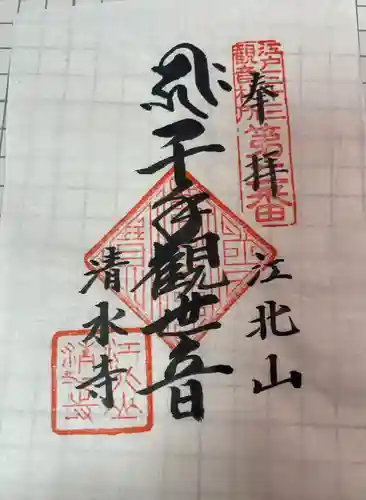 江戸三十三
観音札所
第弐番
奉拝
江北山
千手觀世音
清水寺